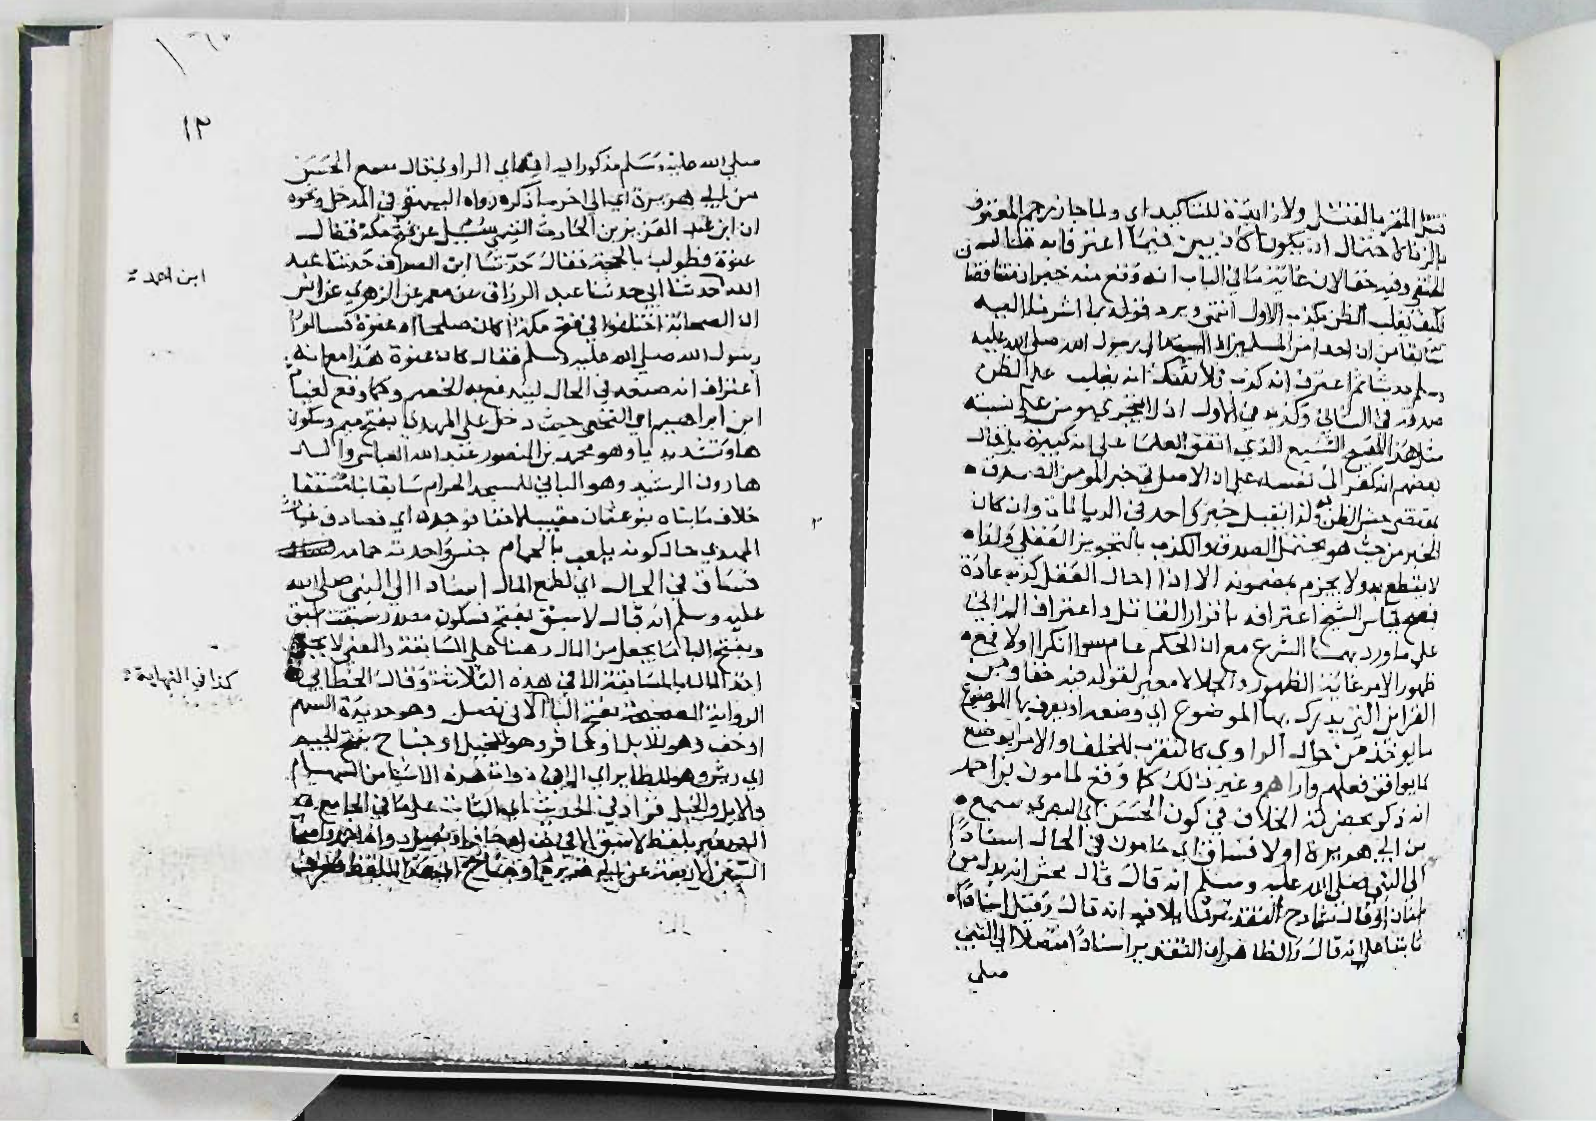 قتل المقر بالقتل ولا زايدة للتاكيد اي ولما جاز رجم المعترف
بالزنا لاحتمال ان يكونا كاذبين فيما اعترفا به
وفيه خفا لان غاية ما في الباب انه وقع منه خبران تناقضا
فكيف يغلب الظن بكذب الاول انتهى ويرد قوله بما اشرنا اليه
سابقا من ان احدا من المسلمين اذا الى رسول الله صلى الله عليه
وسلم حديثا ثم اعترف انه كذب فلا شك انه يغلب على الظن
صدقه في الثاني وكذبه في الاول اذ لا يجتري مومن على نسبة
مثل هذا القبيح الشنيع الذي اتفق العلما على انه كبيرة بل قال
بعضهم انه كفر الى نفسه على ان الاصل في خبر المومن الصدق
بمقتضى حسن الظن به ولذا يقبل خبر كل احد في الديانات وان كان
الخبر من حيث هو يحتمل الصدق والكذب بالتجويز العقلي ولذا
لا يقطع به ولا يجزم بمضمونه الا اذا احال العقل كذبه عادة
نعم قياس الشيخ اعترافه باقرار القاتل واعتراف الزاني
على ما ورد بهما الشرع مع ان الحكم عام سوا انكرا اولا مع
ظهور الامر غاية الظهور والجلا لا معنى لقوله فيه خفا ومن
القراين التي يدرك بها الموضوع اي وضعه او يعرف بها الموضوع
ما يوخذ من حال الراوي كالتقرب للخلفا والامرا بوضع
ما يوافق فعلهم واراهم وغير ذلك كما وقع لمامون بن احمد
انه ذكر بحضرته الخلاف في كون الحسن اي البصري سمع
من ابي هريرة اولا فساق اي مامون في الحال اسنادا
الى النبي صلى الله عليه وسلم انه قال قال محش انه بدل من
اسنادا الى قال شارح التقدير متلبسا فيه انه قال وقيل اسنادا
ثابتا على انه قال والظاهر ان التقدير اسنادا متصلا الى النبي
صلى
١٢
صلى الله عليه وسلم مذكورا فيه انه اي الراوي قال سمع الحسن
من ابي هريرة اي الى اخر ما ذكره رواه البيهقي في المدخل ونحوه
ان ابن عبد العزيز بن الحارث التيمي سئل عن فتح مكة فقال
عنوة فطولب بالحجة فقال حدثنا ابن الصواف حدثنا عبد
الله حدثنا ابي حدثنا عبد الرزاق عن معمر عن الزهري عن انس
ابن احمد
ان الصحابة اختلفوا في فتح مكة اكان صلحا او عنوة فسالوا
رسول الله صلى الله عليه وسلم فقال كان عنوة هذا مع انه
اعترف انه صنعه في الحال ليندفع به الخصم وكما وقع لغياث
ابن ابراهيم اي النخعي حيث دخل على المهدي بفتح ميم وسكون
ها وتشديد يا وهو محمد بن المنصور عبد الله العباسي والد
هارون الرشيد وهو الباني للمسجد الحرام سابقا بناء مسقفا
خلاف ما بناه بنو عثمان مقببا لاحقا فوجده اي فصادف غياث
المهدي حال كونه يلعب بالحمام جنس واحدته حمامة
فساق في الحال اي لطمع المال اسنادا الى النبي صلى الله
عليه وسلم انه قال لا سبق بفتح فسكون مصدر سبقت اسبق
وبفتح البا ما يجعل من المال رهنا على المسابقة والمعنى لا يحل
اخذ المال بالمسابقة الا في هذه الثلاثة وقال الخطابي
كذا في النهاية
الرواية الصحيحة بفتح البا الا في نصل وهو حديدة السهم
او خف وهو للابل او كما فر وهو للخيل او جناح بفتح الجيم
اي ريش وهو للطاير اي الا في ذوات هذه الاشيا من السهام
والابل والخيل فزاد في الحديث اي الثابت على ما في الجامع
الصغير بلفظ لا سبق الا في خف او حافر او نصل رواه احمد واصحاب
السنن الاربعة عن ابي هريرة او جناح